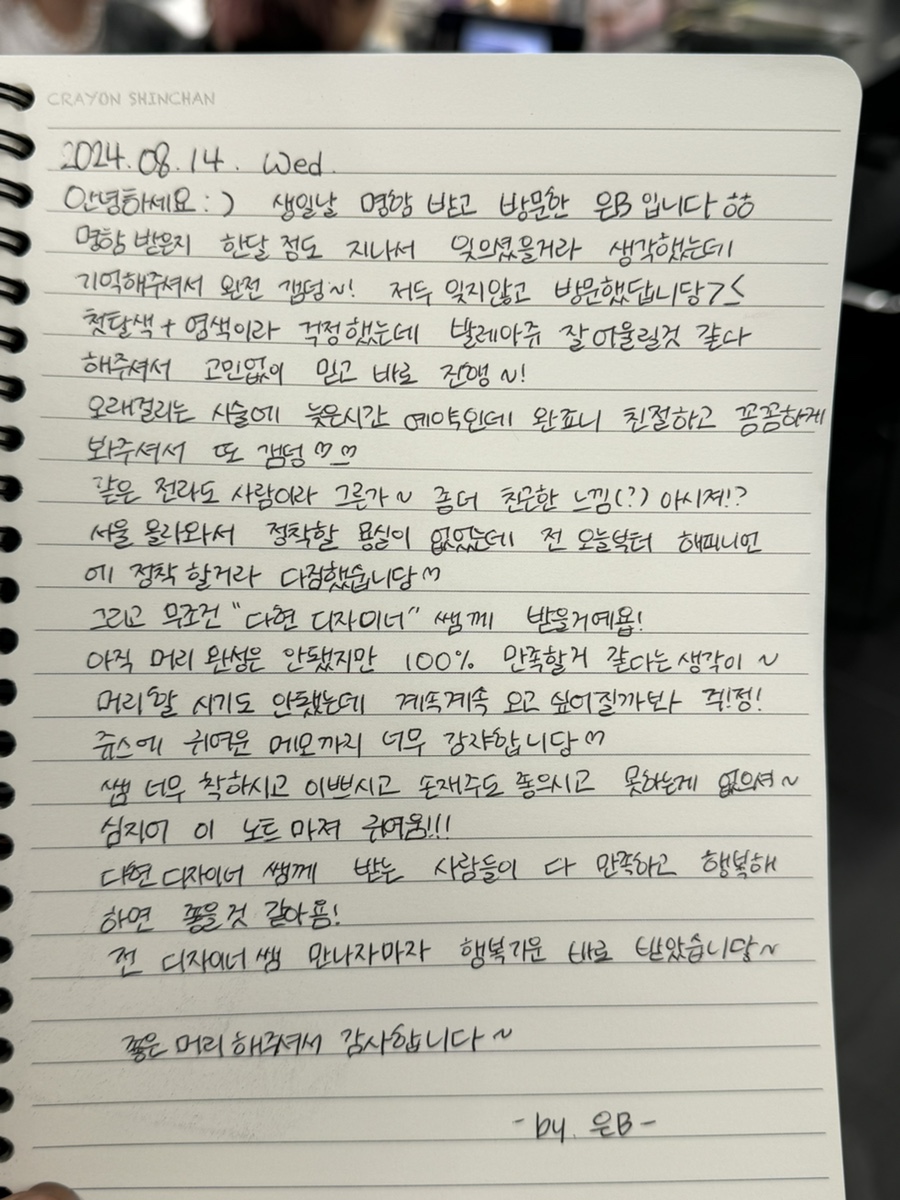 CRAYON SHINCHAN
2024.08.14. Wed.
안녕하세요 : ) 생일날 명함 받고 방문한 은B 입니다 ㅎㅎ
명함 받은지 한달 정도 지나서 잊으셨을거라 생각했는데
기억해주셔서 완전 갬덩~! 저두 잊지않고 방문했답니당 >≤
첫탈색 + 염색이라 걱정했는데 발레아쥬 잘 어울릴것 같다
해주셔서 고민없이 믿고 바로 진행 ~!
오래걸리는 시술에 늦은시간 예약인데 완죠니 친절하고 꼼꼼하게
봐주셔서 또 갬덩 ♡_♡
같은 전라도 사람이라 그른가~ 좀더 친근한 느낌(?) 아시져!?
서울 올라와서 정착할 용실이 없었는데 전 오늘부터 해피니언
에 정착 할거라 다짐했습니당♡
그리고 무조건 "다현 디자이너" 쌤께 받을거예욥!
아직 머리 완성은 안됐지만 100% 만족할거 같다는 생각이 ~
머리할 시기도 안됐는데 계속계속 오고 싶어질까보아 걱!정!
쥬스에 귀여운 메모까지 너무 감쟈합니당♡
쌤 너무 착하시고 이쁘시고 손재주도 좋으시고 못하는게 없으셔~
심지어 이 노트 마저 귀여움!!!
다현 디자이너 쌤께 받는 사람들이 다 만족하고 행복해
하면 좋을것 같아욤!
전 디자이너 쌤 만나자마자 행복기운 바로 받았습니당~
좋은 머리 해주셔서 감사합니다~
- by. 은B -